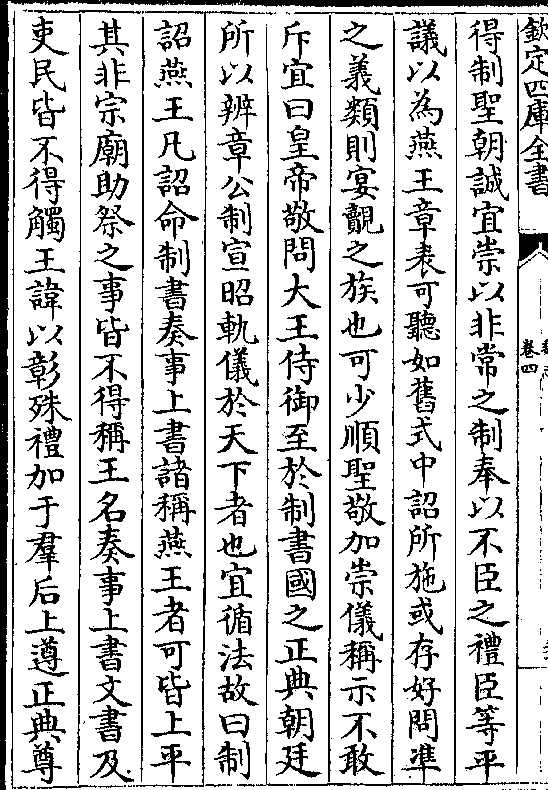 欽定四庫全書
卷四
得制聖朝誠宜崇以非常之制奉以不臣之禮臣等平
議以為燕王章表可聽如舊式中詔所施或存好問準
之義類則宴覿之族也可少順聖敬加崇儀稱示不敢
斥宜曰皇帝敬問大王侍御至於制書國之正典朝廷
所以辨章公制宣昭軌儀於天下者也宜循法故曰制
詔燕王凡詔命制書奏事上書諸稱燕王者可皆上平
其非宗廟助祭之事皆不得稱王名奏事上書文書及
吏民皆不得觸王諱以彰殊禮加于羣后上遵正典尊